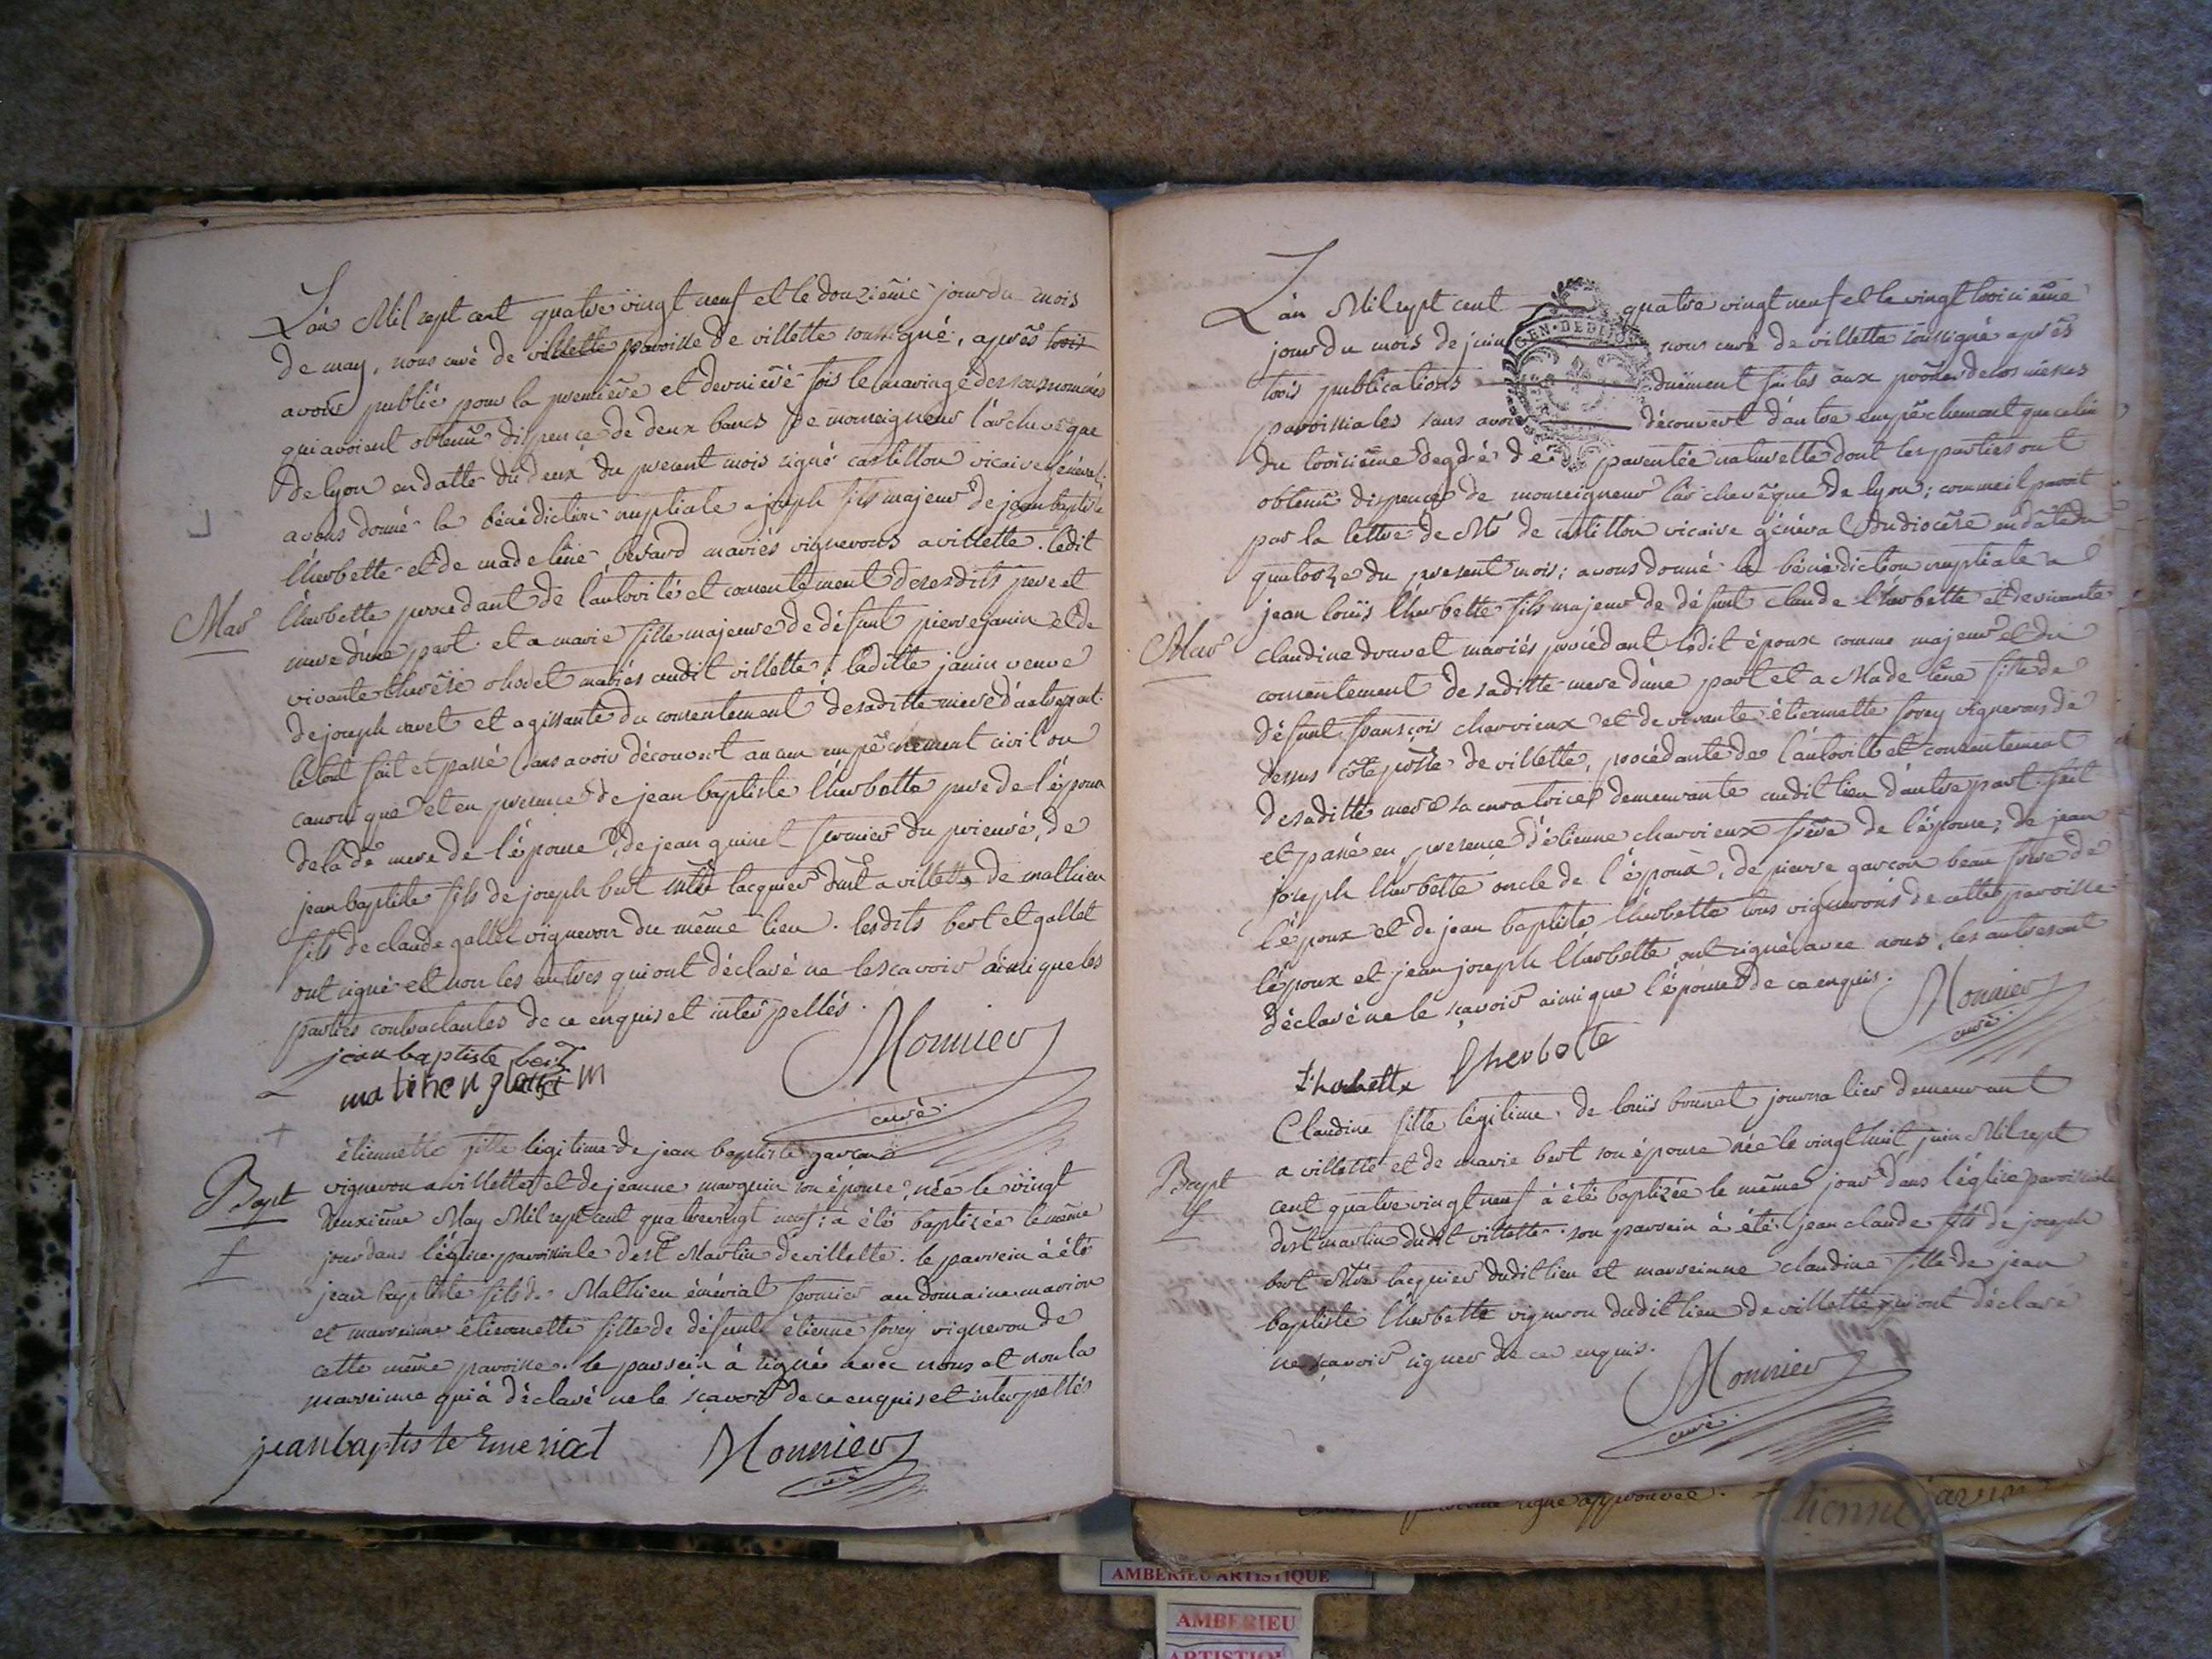 L'an Mil sept cent quatre vingt neuf et le douzième jour du mois
de may, nous curé de villette paroisse de villette soussigné, après trois
avoir publié pour la première et dernière fois le mariage des sousnommés
qui avoient obtenu dispence de deux bancs de monseigneur l'archevêque
de lyon en datte du deux du present mois signé castillon vicaire général;
avons donné la bénédiction nuptiale a joseph fils majeur de jean baptiste
l'herbette et de madeleine bérard mariés vignerons a villette. ledit
l'herbette procedant de l'autorité et consentement de sesdits pere et
Mar
mere d'une part. et a marie fille majeure de défunt pierre janin et de
vivante therèse chodet mariés audit villette; laditte janin veuve
de joseph et agissante du consentement de saditte mere d'autre part.
le tout fait et passé sans avoir découvert aucun empêchement civil ou
canonique et en presence de jean baptiste l'herbette pere de l'époux
de lade mere de l'épouse, de jean quinet fermier du prieuré, de
jean baptiste fils de joseph bert lacquier dudt a villette, de mathieu
fils de claude gallet vigneron du même lieu. lesdits bert et gallet
ont signé et non les autres qui ont déclaré ne le scavoir ainsi que les
parties contractantes de ce enquis et interpellés.
jean baptiste bert
Monnier
curé
étiennette fille légitime de jean baptiste garcon
Bapt
vigneron a villette et de jeanne marguin son épouse, née le vingt
deuxième May Mil sept cent quatre vingt neuf; a été baptizée le même
jour dans l'église paroissiale de st Martin de villette. le parrein à été
jean baptiste fils de Mathieu émériat fermier au domaine marion
et marreinne étiennette fille de défunt étienne forey vigneron de
cette même paroisse. le parrein à signé avec nous et non la
marreinne qui à déclaré ne le scavoir de ce enquis et interpellés
jean baptiste Emeriat
Monnier
curé
L'an Mil sept cent quatre vingt neuf et le vingt troisième
jour du mois de juin nous curé de villette soussigné après
trois publications duëment faites aux prônes de nos messes
paroissiales sans avoir découvert d'autre empêchement que celui
du troisième degré de parentée naturelle dont les parties ont
obtenu dispence de monseigneur l'archevêque de lyon; comme il paroit
par la lettre de Mr de castillon vicaire général du diocèse en date du
quatorze du present mois; avons donné la bénédiction nuptiale a
jean louis l'herbette fils majeur de défunt claude l'herbette et de vivante
Mar
claudine drevet mariés procédant ledit époux comme majeur et du
consentement de saditte mere d'une part et a Madeleine fille de
défunt françois charvieux et de vivante étiennette forey vignerons de
dessus côte psse de villette, procédante de l'autorité et consentement
de saditte mere sa curatrice demeurante audit lieu d'autre part. fait
et passé en presence d'étienne charvieux frère de l'épouse, de jean
joseph l'herbette oncle de l'époux, de pierre garcon beau frere de
l'époux et de jean baptiste l'herbette tous vignerons de cette paroisse
l'époux et jean joseph l'herbette ont signé avec nous, les autres ont
déclaré ne le scavoir ainsi que l'épouse de ce enquis.
Monnier
curé
l'herbette lherbette
Claudine fille légitime de louis journalier demeurant
a villette et de marie bert son épouse née le vingt huit juin Mil sept
Bapt
cent quatre vingt neuf à été baptizée le même jour dans l'église paroissiale
de st martin dudt villette. son parrein à été jean claude fils de joseph
bert lacquier dudit lieu et marreinne claudine fille de jean
baptiste l'herbette vigneron dudit lieu de villette qui ont déclaré
ne scavoir signer de ce enquis.
Monnier
curé
ligne approuvée.
AMBERIEU ARTISTIQUE
AMBERIEU
ARTISTIQUE